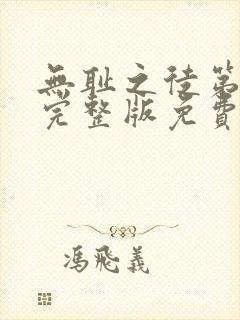 無耻之徒第
完整版免費
馮飛義